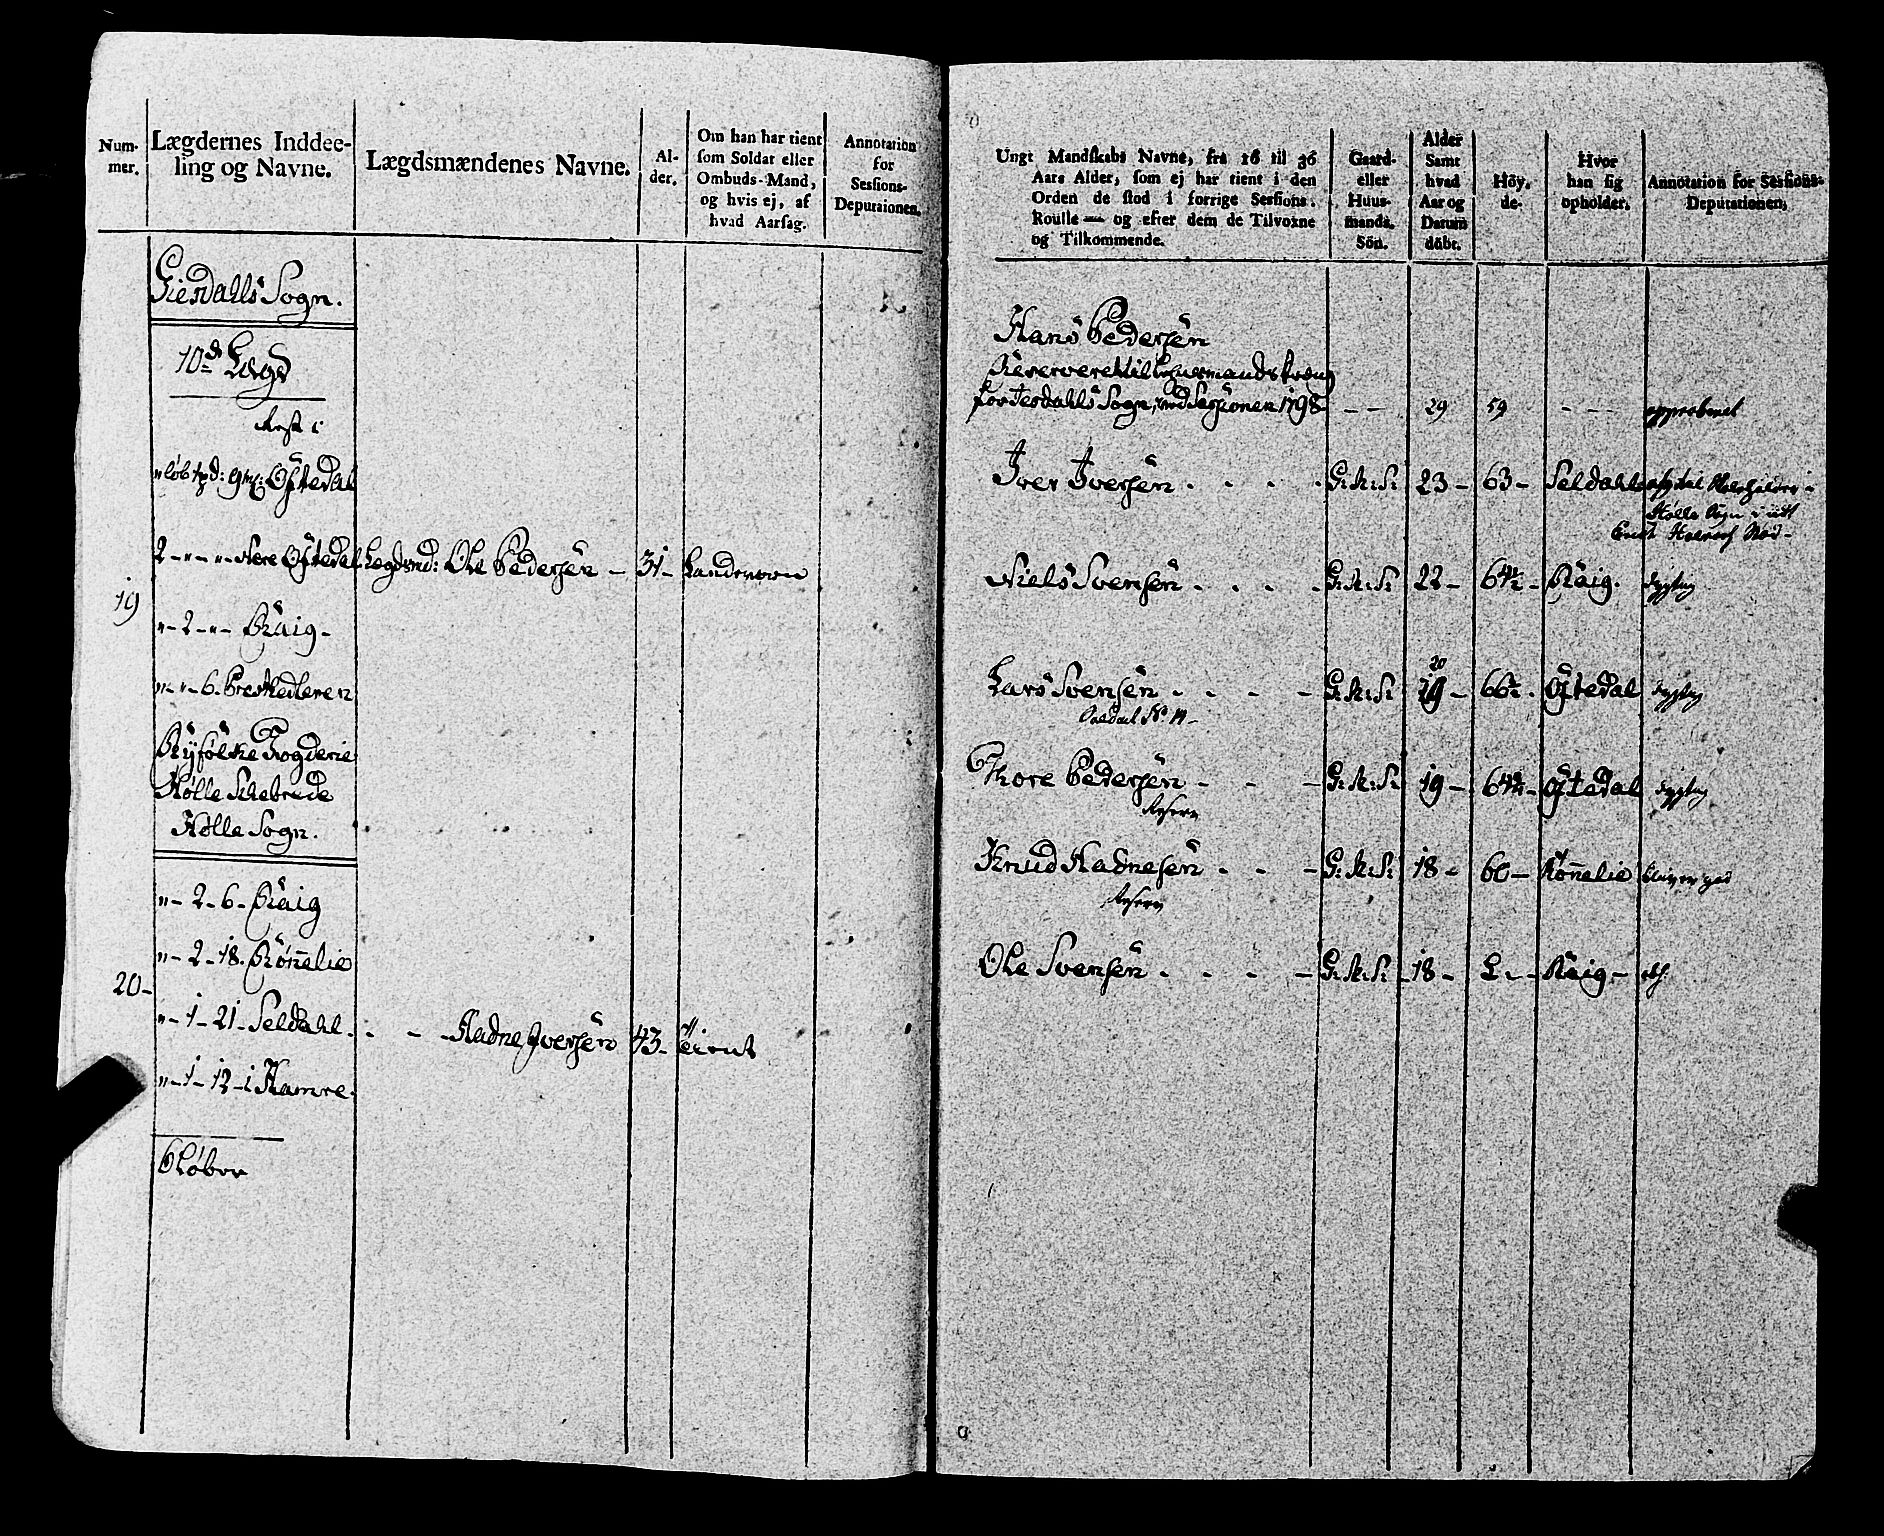 Num-
mer.
Lægdernes Inddee-
ling og Navne.
Lægdsmændenes Navne.
Al-
der.
Om han har tient
som Soldat eller
Ombuds-Mand,
og hvis ej, af
hvad Aarsag.
Annotation
for
Sessions-
Deputaionen.
Giesdalls Sogn.
10de Lægd
2 - " - " - Nere Oftedal Lægdsmd: Ole Pedersen - 31 - Landeværn
19
" - 2 - " - Räig -
" - " - 6 -
Ryfölke Fogderie
Hölle Schebrede
Hölle Sogn.
" - 2 - 6 - Räig
" - 2 - 18. Rönnelie
20 -
" - 1 - 21 - Seldahl - - - Aadne Iversen 43 - tient
" - 1 - 12 - i Kamre.
6 Löber
Ungt Mandskabs Navne, fra 16 til 36
Aars Alder, som ej har tient i den
Orden de stod i forrige Sessions.
Roulle — og efter dem de Tilvoxne
og Tilkommende.
Gaard-
eller
Huus-
mands.
Sön.
Alder
Samt
hvad
Aar og
Datum
döbt.
Höy.
de-
Hvor
han sig
opholder.
Annotation for Sessions-
Deputationen,
Hans Pedersen
Reserveret til Lensmands
for Jesdahls Sogn, ved Sessionen 1798 - - 29 59 - - - approberet
Iver Iversen . . . . G: M: S: 23 - 63 - Seldahl
Hölle Sogn i
Niels Svensen . . . . G: M: S: 22 - 64½ - Räig. dygtig
20
Lars Svensen . . . - G: M: S: 19 - 66½ - Oftedal dygtig
Thore Pedersen - - - G: M: S: 19 - Oftedal dygtig
Reserv
Knud Aadnesen . . - G: M: S: 18 - 60 - Rönnelie
Reserv
Ole Svensen . . . - G: M: S: 18 - L - Räig -